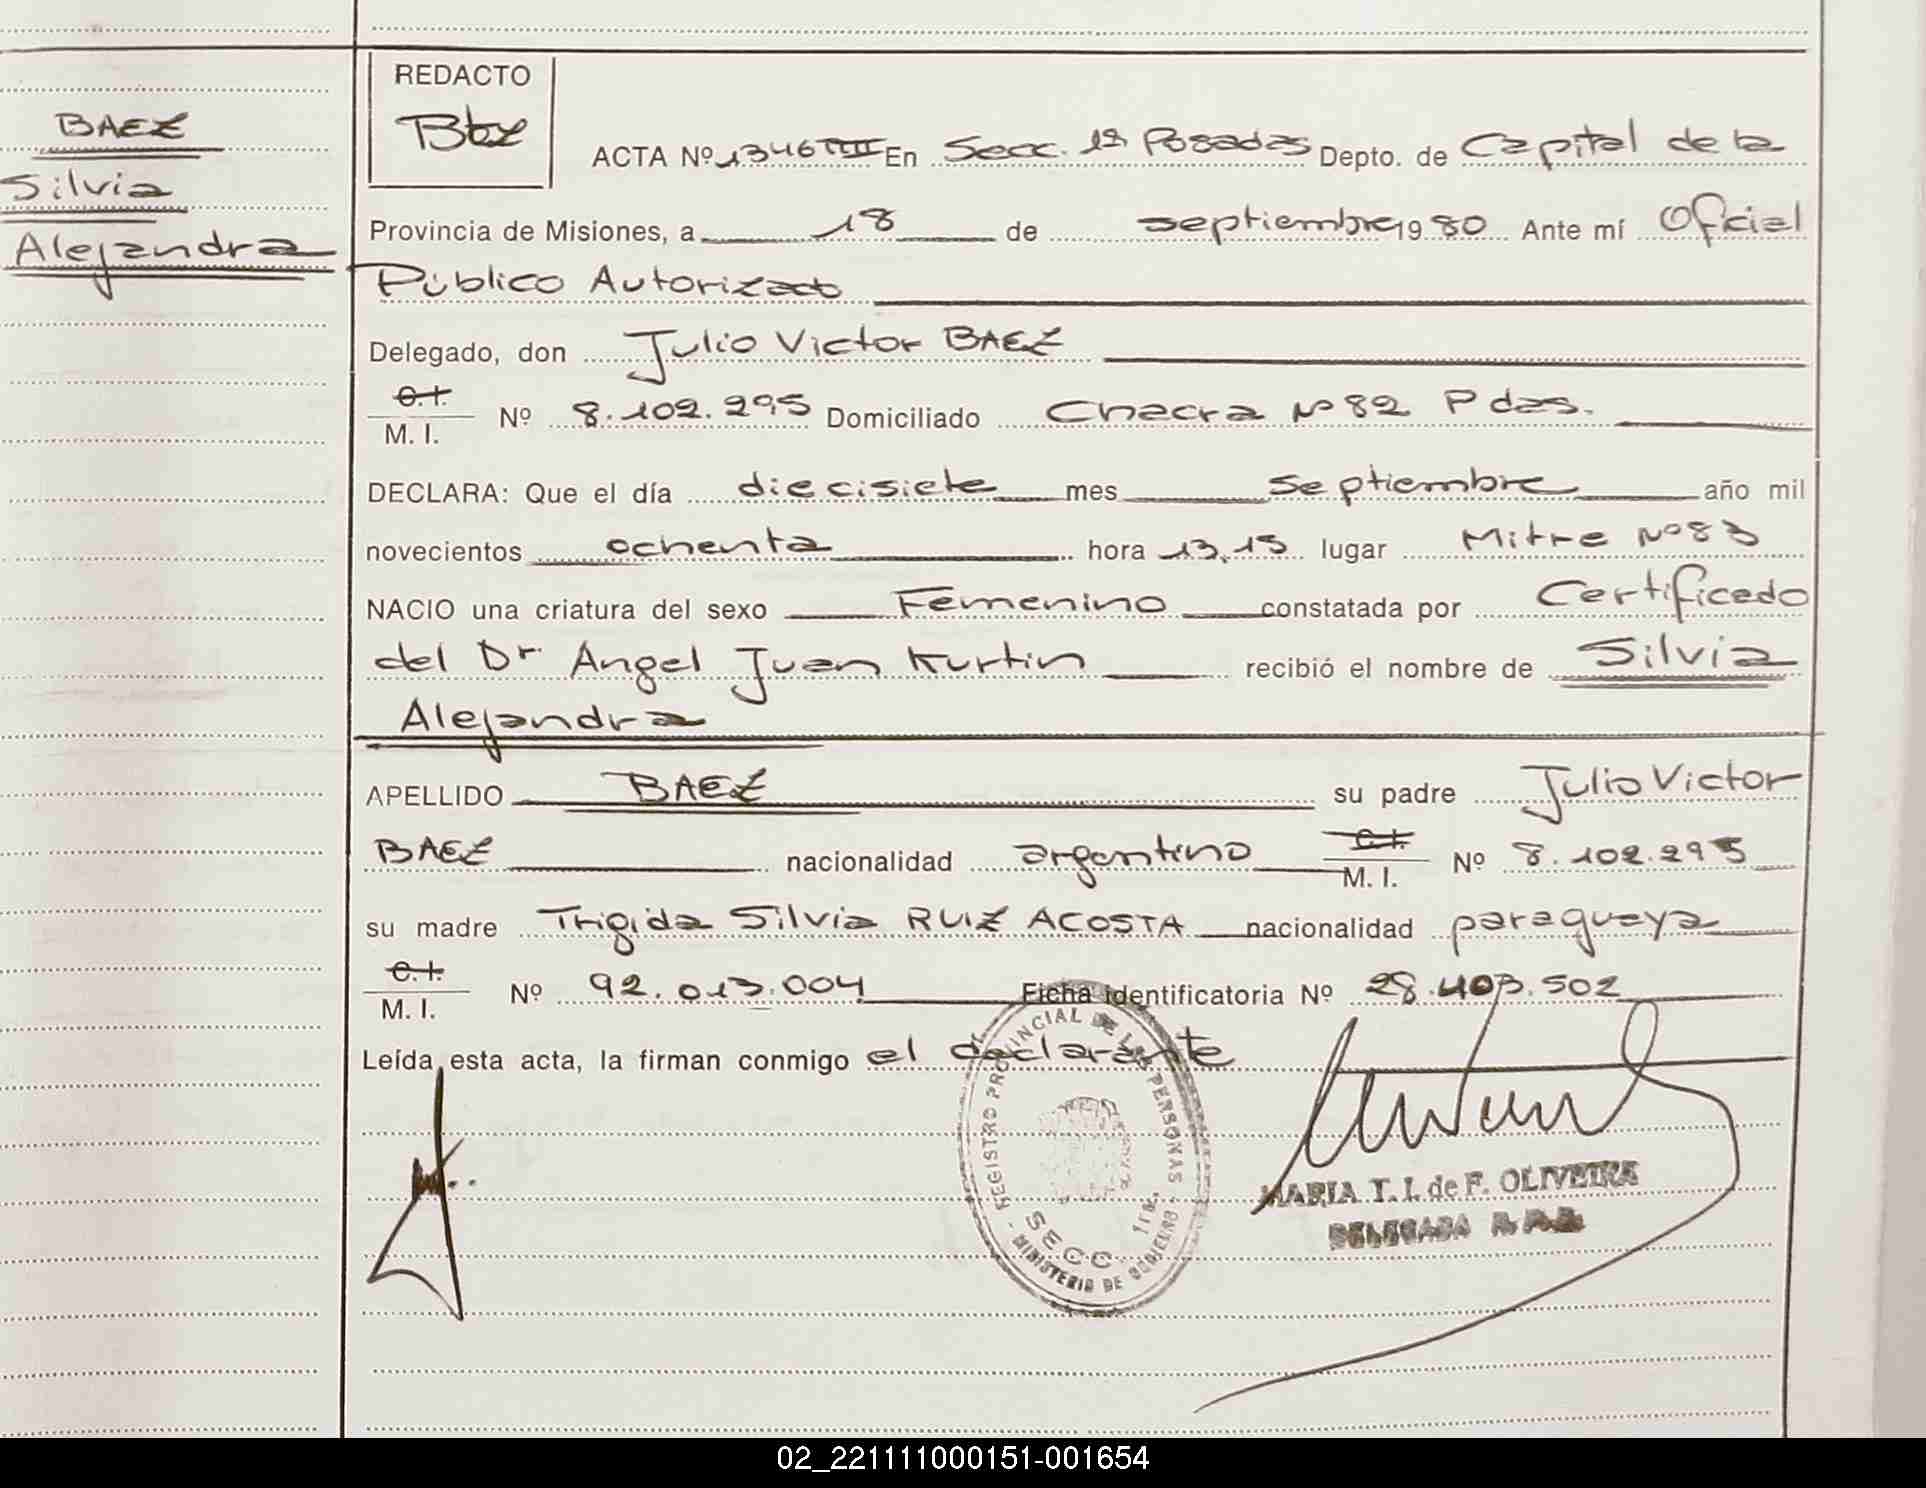 BAEZ
Silvia
Alejandra
REDACTO
ACTA Nº 1346 TIII En Secc. 1ª Posadas Depto. de Capital de la
Provincia de Misiones, a 18 de septiembre 1980 Ante mí Oficial
Público Autorizado
Delegado, don Julio Victor BAEZ
C.I. M. I. Nº 8.102.295 Domiciliado Chacra Nº 82 Pdas.
DECLARA: Que el día diecisiete mes septiembre año mil
novecientos ochenta hora 13,15 lugar Mitre Nº 83
NACIO una criatura del sexo Femenino constatada por Certificado
del Dr. Angel Juan Kurtin recibió el nombre de Silvia
Alejandra
APELLIDO BAEZ su padre Julio Victor
BAEZ nacionalidad argentino C.I. M. I. Nº 8.102.295
su madre Trigida Silvia RUIZ ACOSTA nacionalidad paraguaya
C.I. M. I. Nº 92.013.004 Ficha identificatoria Nº 28.403.502
Leída esta acta, la firman conmigo el declarante
REGISTRO PROVINCIAL DE LAS PERSONAS
SECC. 1ra.
MINISTERIO DE GOBIERNO
MARIA T. I. de F. OLIVEIRA
DELEGADA R. P. P.
02_221111000151-001654